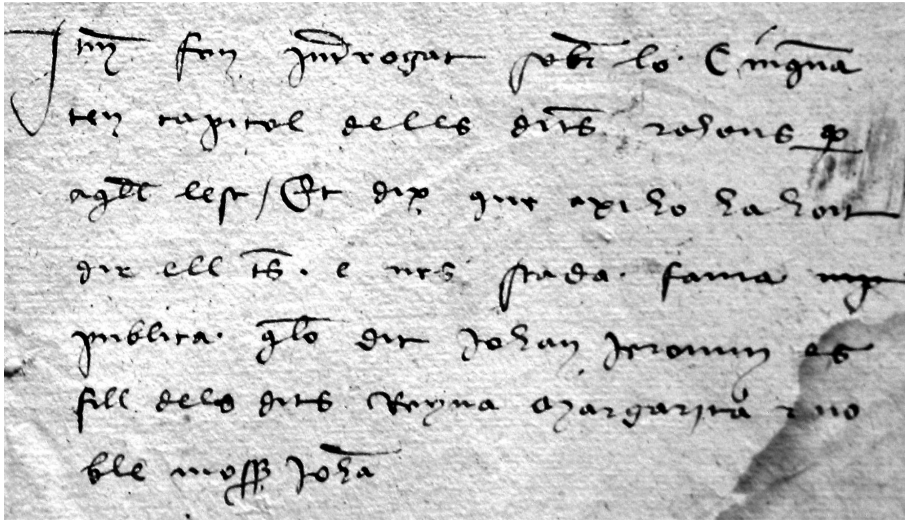 Itm fon Introgat sobr lo Cinqua
ten capitol de les dits rahons p
aqll lest / Et dix que axi ho ha hoit
dir ell ts. e nes stada fama
publica. qlo dit Johan Jeronim es
fill dels dits Reyna Margarita e no
ble moss Joha